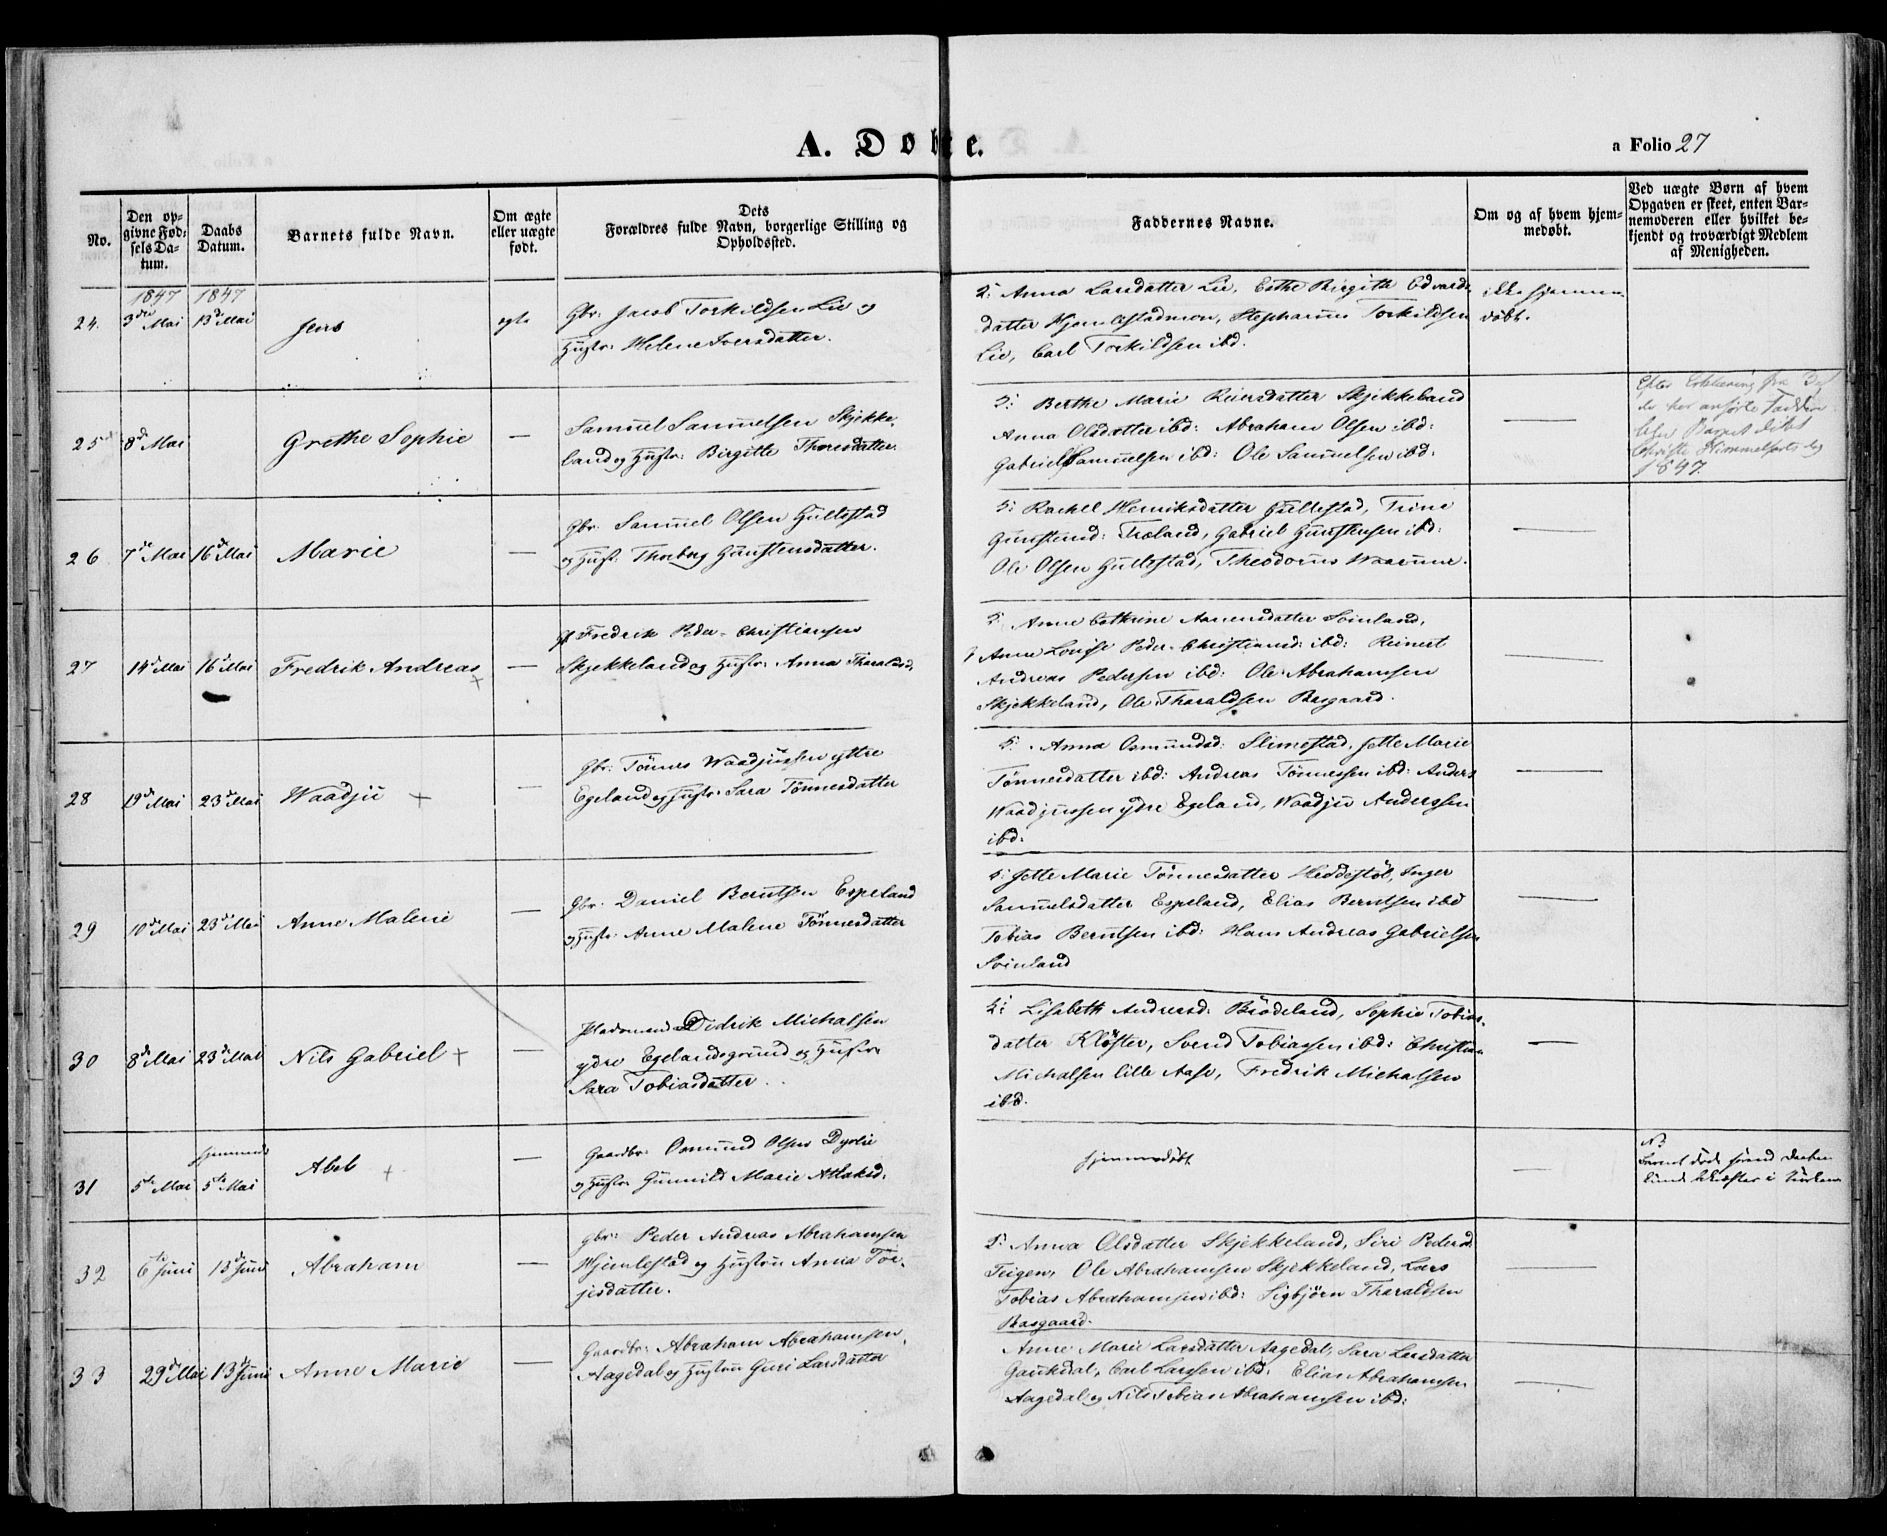 A. Døbte.
a Folio 27
No.
Den op-
givne Fød-
sels Da-
tum.
Daabs
Datum.
Barnets fulde Navn.
Om ægte
eller uægte
født.
Dets
Forældres fulde Navn, borgerlige Stilling og
Opholdssted.
Faddernes Navne.
Om og af hvem hjem-
medøbt.
Ved uægte Børn af hvem
Opgaven er skeet, enten Bar-
nemoderen eller hvilket be-
kjendt og troværdigt Medlem
af Menigheden.
1847 1847
24. 3die Mai 13d Mai Jens egte
Gbr: Jacob Torkildsen Lie og
Hustr: Helene Iversdatter.
5: Anna Larsdatter Lie, Birgith Edvards
datter Stephanus Torkildsen
Lie, Carl Torkildsen ibd.
ikke hjemme-
døbt.
25 8d Mai Grethe Sophie —
Samuel Samuelsen Skjekke-
land og Hustr: Birgitte Thoresdatter.
5: Berthe Marie Reiersdatter Skjekkeland
Anna Olsdatter ibd: Abraham Olsen ibd:
Gabriel Samuelsen ibd: Ole Samuelsen ibd:
Efter Erklæring fra
de her anførte Faddere
blev Barnet døbt
Christi Himmelfarts dag
1847.
26 7de Mai 16de Mai Marie —
Gbr: Samuel Olsen Hullestad
og Hustr: Thorborg Gunstensdatter.
5: Rachel Henriksdatter Hullestad, Trine
Gunstensd: Træland, Gabriel Gunstensen ibd:
Ole Olsen Hullestad, Theodorus
27 14d Mai 16d Mai Fredrik Andreas +
Fredrik Peder-Christiansen
Skjekkeland og Hustr: Anna Tharaldsd.
5: Anne Cathrine Svinland,
Anne Louise Peder-Christiansd: ibd: Reinert
Andreas Pedersen ibd: Ole Abrahamsen
Skjekkeland, Ole Tharaldsen Baasgaard.
28 19d Mai 23d Mai Waadju + —
Gbr: Tönnes Waadjussen yttre
Egeland og Hustr: Sara Tönnesdatter
5: Anna Osmundsd: Slimestad, Jette Marie
Tönnesdatter ibd: Andreas Tönnessen ibd: Anders
Waadjussen ydre Egeland, Waadju Anderssen
ibd:
29 10d Mai 23d Mai Anne Malene —
Gbr: Daniel Berntsen Espeland
og Hustr: Anne Malene Tönnesdatter
5: Jette Marie Tönnesdatter Heddestöl, Inger
Samuelsdatter Espeland, Elias Berntsen ibd
Tobias Berntsen ibd: Hans Andreas Gabrielsen
Svinland
30 8d Mai 23d Mai Nils Gabriel + —
Pladsmand Didrik Michalsen
ydre Egelandsgrund og Hustr:
Sara Tobiasdatter.
5: Lisabeth Andersd: Brödeland, Sophie Tobias-
datter Klöfter, Svend Tobiassen ibd: Christian
Michalsen lille Aase, Fredrik Michalsen
ibd.
hjemmed:
31 5te Mai 5te Mai Abel + —
Gaardbr: Osmund Olsen Dyrlie
og Hustr: Gunnild Marie Atlaksd.
hjemmedøbt
Barnet döde förend Daaben
kunde bekræftes i Kirken
32 6te Juni 13d Juni Abraham —
gbr: Peder Andreas Abrahamsen
Hjemlestad og Hustru Anna Tör-
jisdatter.
5: Anna Olsdatter Skjekkeland, Siri Pedersd.
Teigen, Ole Abrahamsen Skjekkeland, Lars
Tobias Abrahamsen ibd: Sigbjörn Tharaldsen
Baasgaard.
33 29d Mai 13d Juni Anne Marie —
Gaardbr: Abraham Abrahamsen
Aagedal og Hustru Guri Larsdatter
Anne Marie Larsdatter Aagedal, Sara Larsdatter
Gaukdal, Carl Larssen ibd: Elias Abrahamsen
Aagedal og Nils Tobias Abrahamsen ibd: